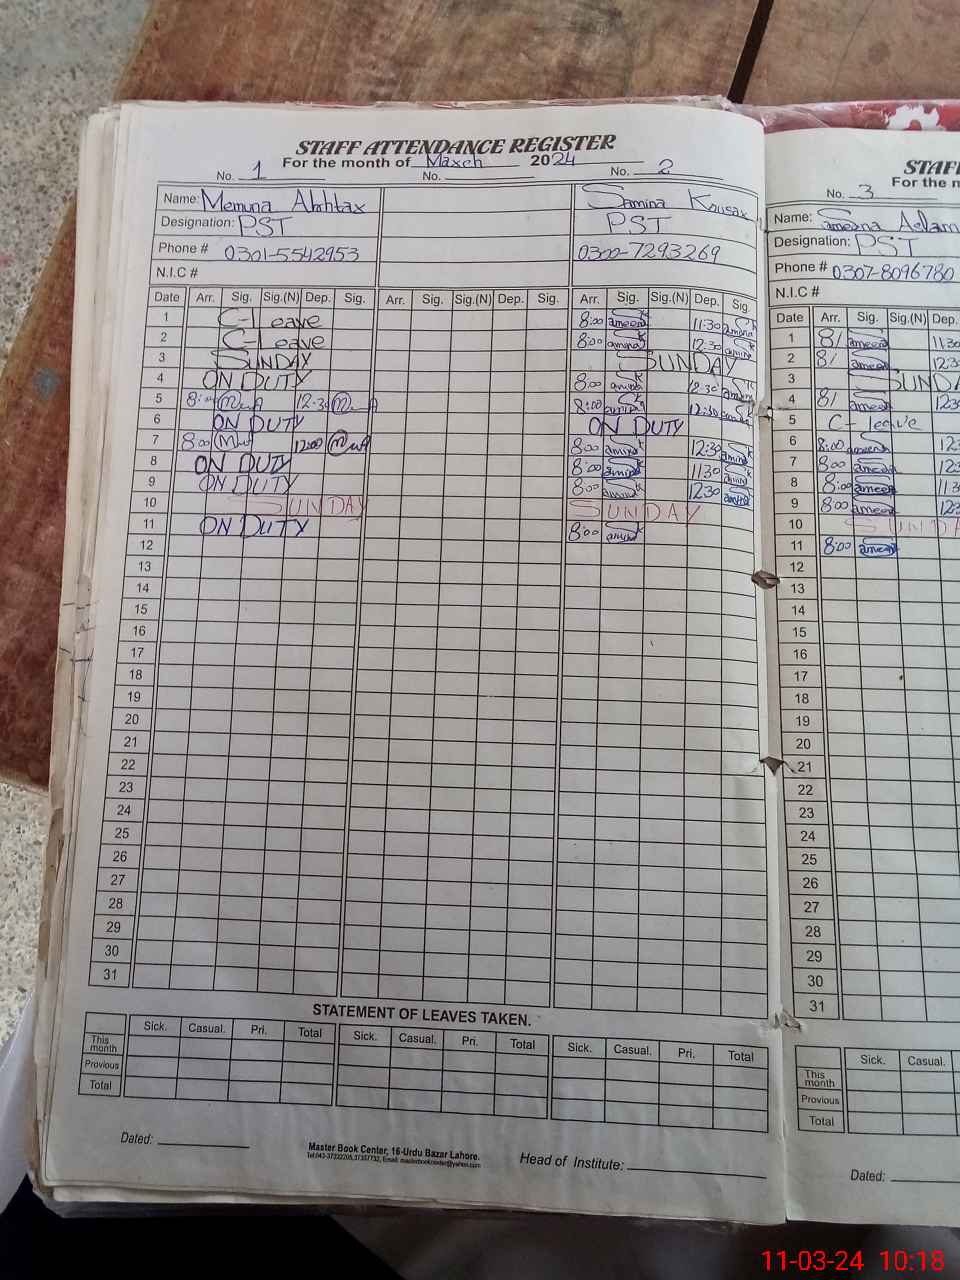 STAFF ATTENDANCE REGISTER
For the month of March 2024
No. 1 No. No. 2
Name: Memuna Samina Kousar
Designation: PST PST
Phone # 0301-5542953 0300-7293269
N.I.C #
Date Arr. Sig. Sig.(N) Dep. Sig. Arr. Sig. Sig.(N) Dep. Sig. Arr. Sig. Sig.(N) Dep. Sig.
1 C-Leave 8:00 11:30
2 C-Leave 8:00 12:30
3 SUNDAY SUNDAY
4 ON DUTY 8:00 12:30
5 8:00 12:30 8:00 12:30
6 ON DUTY ON DUTY
7 8:00 12:00 8:00 12:30
8 ON DUTY 8:00 11:30
9 ON DUTY 8:00 12:30
10 SUNDAY SUNDAY
11 ON DUTY 8:00
12
13
14
15
16
17
18
19
20
21
22
23
24
25
26
27
28
29
30
31
STATEMENT OF LEAVES TAKEN.
Sick. Casual. Pri. Total Sick. Casual. Pri. Total Sick. Casual. Pri. Total
This month
Previous
Total
Dated:
Master Book Center, 16-Urdu Bazar Lahore.
Head of Institute:
STAF
For the m
No. 3
Name:
Designation: PST
Phone # 0307-8096780
N.I.C #
Date Arr. Sig. Sig.(N) Dep.
1 8/ 11:30
2 8/ 12:3
3 SUNDA
4 8/ 12:3
5 C-leave
6 8:00 12:
7 8:00 12:
8 8:00 11:3
9 8:00 12:
10 SUNDA
11 8:00
12
13
14
15
16
17
18
19
20
21
22
23
24
25
26
27
28
29
30
31
Sick. Casual.
This month
Previous
Total
Dated:
11-03-24 10:18